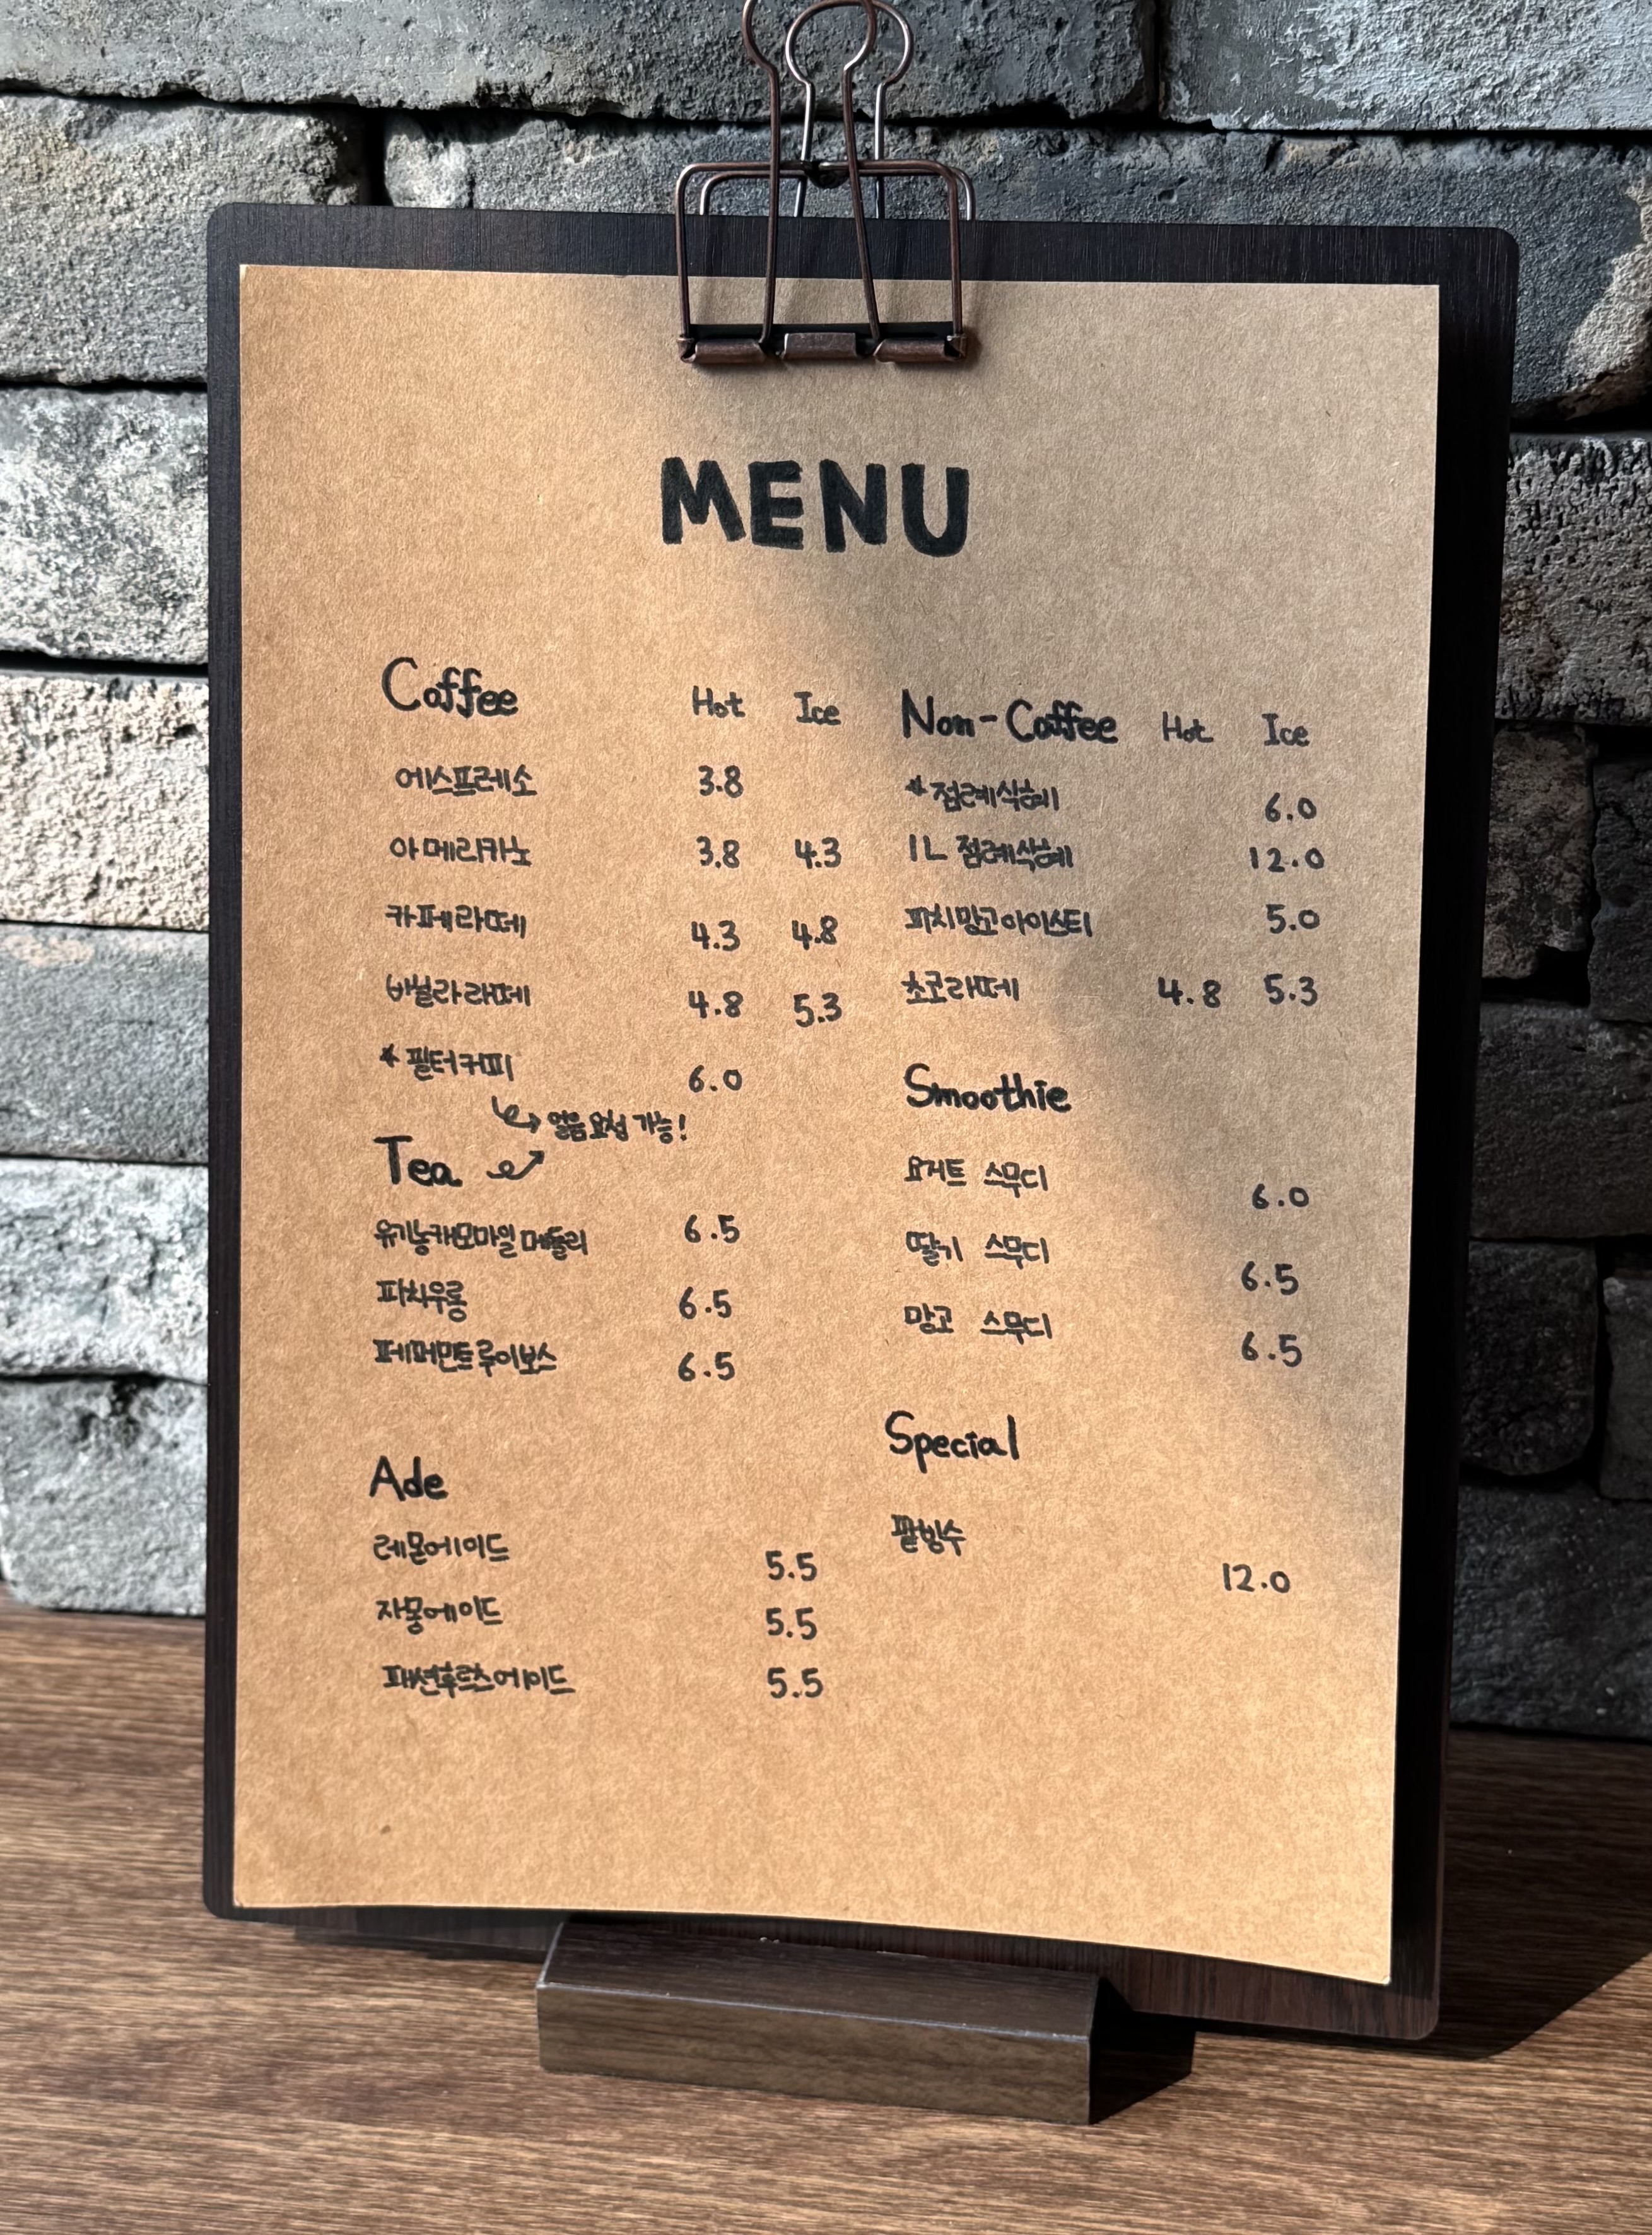 MENU
Coffee Hot Ice
에스프레소 3.8
아메리카노 3.8 4.3
카페라떼 4.3 4.8
바닐라라떼 4.8 5.3
*필터커피 6.0
얼음요청 가능!
Tea
유기농캐모마일 메들리 6.5
피치우롱 6.5
페퍼민트루이보스 6.5
Ade
레몬에이드 5.5
자몽에이드 5.5
패션후르츠에이드 5.5
Non-Coffee Hot Ice
*점례식혜 6.0
1L 점례식혜 12.0
피치망고아이스티 5.0
초코라떼 4.8 5.3
Smoothie
요거트 스무디 6.0
딸기 스무디 6.5
망고 스무디 6.5
Special
팥빙수 12.0